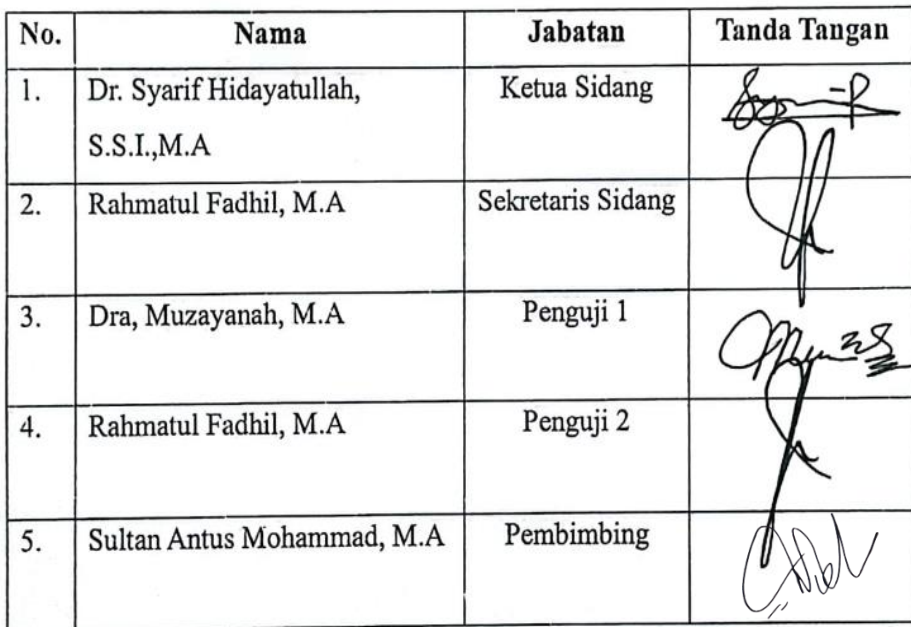 No. Nama Jabatan Tanda Tangan
1. Dr. Syarif Hidayatullah, Ketua Sidang
S.S.I.,M.A
2. Rahmatul Fadhil, M.A Sekretaris Sidang
3. Dra, Muzayanah, M.A Penguji 1
4. Rahmatul Fadhil, M.A Penguji 2
5. Sultan Antus Mohammad, M.A Pembimbing